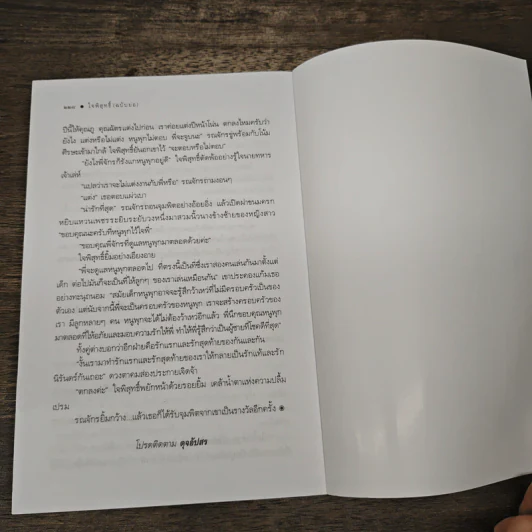 ๒๒๘ ● ใจพิสุทธิ์ (ฉบับย่อ)
ปีนี้ให้คุณภู คุณฉัตรแต่งไปก่อน เราค่อยแต่งปีหน้าโน่น ตกลงไหมครับว่า
ยังไง แต่งหรือไม่แต่ง หนูพุกไม่ตอบ พี่จะจูบนะ" รณจักรขู่พร้อมกับโน้ม
ศีรษะเข้ามาใกล้ ใจพิสุทธิ์ยันอกเขาไว้ "จะตอบหรือไม่ตอบ"
"ยังไงพี่จักรก็รังแกหนูพุกอยู่ดี" ใจพิสุทธิ์ตัดพ้ออย่างรู้ใจนายทหาร
เจ้าเล่ห์
"แปลว่าเราจะไม่แต่งงานกับพี่หรือ" รณจักรถามงอนๆ
"แต่ง" เธอตอบแผ่วเบา
"น่ารักที่สุด" รณจักรถอนจุมพิตอย่างอ้อยอิ่ง แล้วเปิดฝาขนมครก
หยิบแหวนเพชรระยิบระยับวงหนึ่งมาสวมนิ้วนางข้างซ้ายของหญิงสาว
"ขอบคุณนะครับที่หนูพุกไว้ใจพี่"
"ขอบคุณพี่จักรที่ดูแลหนูพุกมาตลอดด้วยค่ะ"
ใจพิสุทธิ์ยิ้มอย่างเอียงอาย
"พี่จะดูแลหนูพุกตลอดไป ที่ตรงนี้เป็นที่ซึ่งเราสองคนเล่นกันมาตั้งแต่
เด็ก ต่อไปมันก็จะเป็นที่ให้ลูกๆ ของเราเล่นเหมือนกัน" เขาประคองแก้มเธอ
อย่างทะนุถนอม "สมัยเด็กหนูพุกอาจจะรู้สึกว้าเหว่ที่ไม่มีครอบครัวเป็นของ
ตัวเอง แต่นับจากนี้พี่จะเป็นครอบครัวของหนูพุก เราจะสร้างครอบครัวของ
เรา มีลูกหลายๆ คน หนูพุกจะได้ไม่ต้องว้าเหว่อีกแล้ว พี่นึกขอบคุณหนูพุก
มาตลอดที่ให้อภัยและมอบความรักให้พี่ ทำให้พี่รู้สึกว่าเป็นผู้ชายที่โชคดีที่สุด"
ทั้งคู่ต่างบอกว่าอีกฝ่ายคือรักแรกและรักสุดท้ายของกันและกัน
"งั้นเรามาทำรักแรกและรักสุดท้ายของเราให้กลายเป็นรักแท้และรัก
นิรันดร์กันเถอะ" ดวงตาคมสองประกายเจิดจ้า
"ตกลงค่ะ" ใจพิสุทธิ์พยักหน้าด้วยรอยยิ้ม เคล้าน้ำตาแห่งความปลื้ม
เปรม
รณจักรยิ้มกว้าง...แล้วเธอก็ได้รับจุมพิตจากเขาเป็นรางวัลอีกครั้ง
โปรดติดตาม ดุจอัปสร